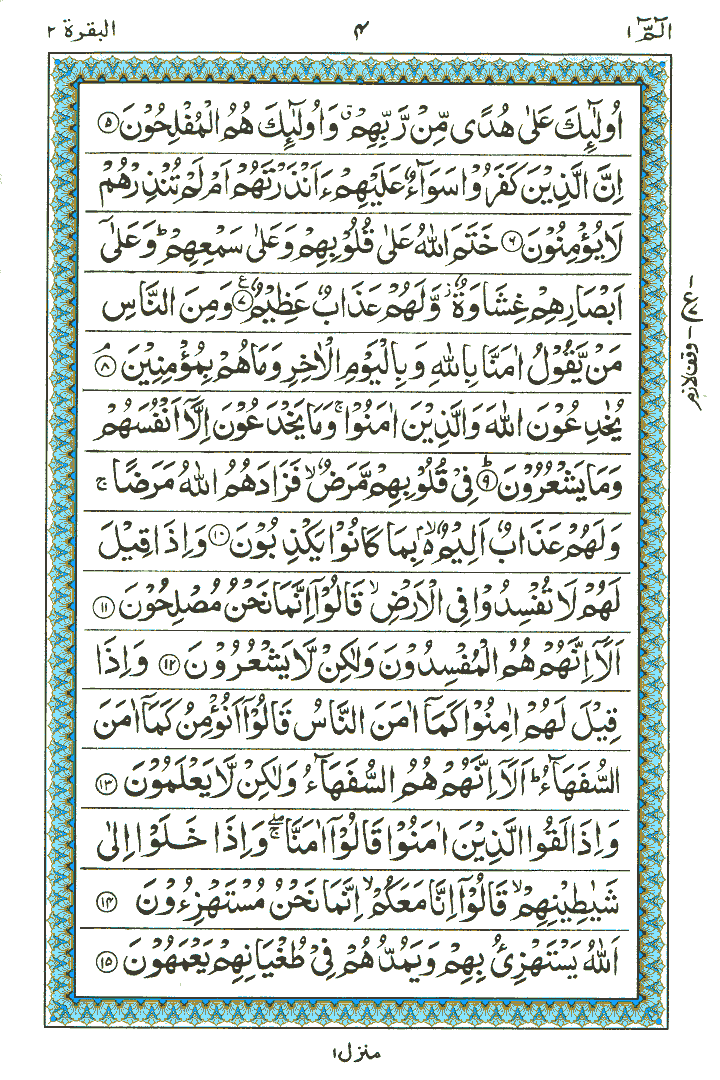 الٓمّٓ ١ ٤ البقرة ٢
اُولٰٓئِكَ عَلٰى هُدًى مِّنْ رَّبِّهِمْ ۗ وَاُولٰٓئِكَ هُمُ الْمُفْلِحُوْنَ ۝٥
اِنَّ الَّذِيْنَ كَفَرُوْا سَوَآءٌ عَلَيْهِمْ ءَاَنْذَرْتَهُمْ اَمْ لَمْ تُنْذِرْهُمْ
لَا يُؤْمِنُوْنَ ۝٦ خَتَمَ اللّٰهُ عَلٰى قُلُوْبِهِمْ وَعَلٰى سَمْعِهِمْ ؕ وَعَلٰٓى
اَبْصَارِهِمْ غِشَاوَةٌ ز وَّلَهُمْ عَذَابٌ عَظِيْمٌ ۝٧ ع وَمِنَ النَّاسِ
مَنْ يَّقُوْلُ اٰمَنَّا بِاللّٰهِ وَبِالْيَوْمِ الْاٰخِرِ وَمَا هُمْ بِمُؤْمِنِيْنَ ۝٨ۘ
يُخٰدِعُوْنَ اللّٰهَ وَالَّذِيْنَ اٰمَنُوْا ۚ وَمَا يَخْدَعُوْنَ اِلَّآ اَنْفُسَهُمْ
وَمَا يَشْعُرُوْنَ ۝٩ؕ فِيْ قُلُوْبِهِمْ مَّرَضٌ ۙ فَزَادَهُمُ اللّٰهُ مَرَضًا ۚ
وَلَهُمْ عَذَابٌ اَلِيْمٌۢ ۙ۬ بِمَا كَانُوْا يَكْذِبُوْنَ ۝١٠ وَاِذَا قِيْلَ
لَهُمْ لَا تُفْسِدُوْا فِى الْاَرْضِ ۙ قَالُوْٓا اِنَّمَا نَحْنُ مُصْلِحُوْنَ ۝١١
اَلَآ اِنَّهُمْ هُمُ الْمُفْسِدُوْنَ وَلٰكِنْ لَّا يَشْعُرُوْنَ ۝١٢ وَاِذَا
قِيْلَ لَهُمْ اٰمِنُوْا كَمَآ اٰمَنَ النَّاسُ قَالُوْٓا اَنُؤْمِنُ كَمَآ اٰمَنَ
السُّفَهَآءُ ؕ اَلَآ اِنَّهُمْ هُمُ السُّفَهَآءُ وَلٰكِنْ لَّا يَعْلَمُوْنَ ۝١٣
وَاِذَا لَقُوا الَّذِيْنَ اٰمَنُوْا قَالُوْٓا اٰمَنَّا ۖۚ وَاِذَا خَلَوْا اِلٰى
شَيٰطِيْنِهِمْ ۙ قَالُوْٓا اِنَّا مَعَكُمْ ۙ اِنَّمَا نَحْنُ مُسْتَهْزِءُوْنَ ۝١٤
اَللّٰهُ يَسْتَهْزِئُ بِهِمْ وَيَمُدُّهُمْ فِيْ طُغْيَانِهِمْ يَعْمَهُوْنَ ۝١٥
منزل ١
وقف لازم